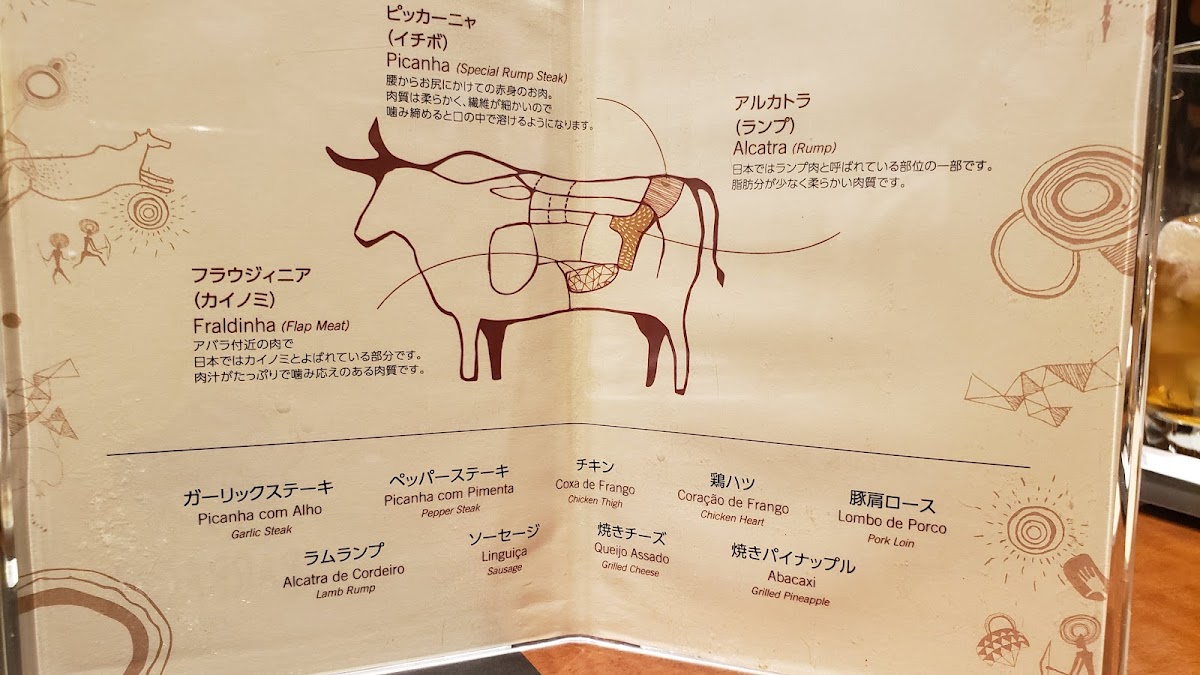 ピッカーニャ
(イチボ)
Picanha (Special Rump Steak)
腰からお尻にかけての赤身のお肉。
肉質は柔らかく、繊維が細かいので
噛み締めると口の中で溶けるようになります。
アルカトラ
(ランプ)
Alcatra (Rump)
日本ではランプ肉と呼ばれている部位の一部です。
脂肪分が少なく柔らかい肉質です。
フラウジィニア
(カイノミ)
Fraldinha (Flap Meat)
アバラ付近の肉で
日本ではカイノミとよばれている部分です。
肉汁がたっぷりで噛み応えのある肉質です。
ガーリックステーキ
Picanha com Alho
Garlic Steak
ペッパーステーキ
Picanha com Pimenta
Pepper Steak
チキン
Coxa de Frango
Chicken Thigh
鶏ハツ
Coração de Frango
Chicken Heart
豚肩ロース
Lombo de Porco
Pork Loin
ラムランプ
Alcatra de Cordeiro
Lamb Rump
ソーセージ
Linguiça
Sausage
焼きチーズ
Queijo Assado
Grilled Cheese
焼きパイナップル
Abacaxi
Grilled Pineapple